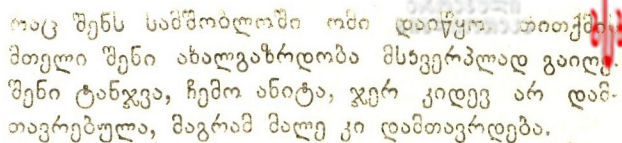 რაც შენს სამშობლოში ომი დაიწყო, თითქმის
მთელი შენი ახალგაზრდობა მსხვერპლად გაიღე.
შენი ტანჯვა, ჩემო ანიტა, ჯერ კიდევ არ დამ-
თავრებულა, მაგრამ მალე კი დამთავრდება.